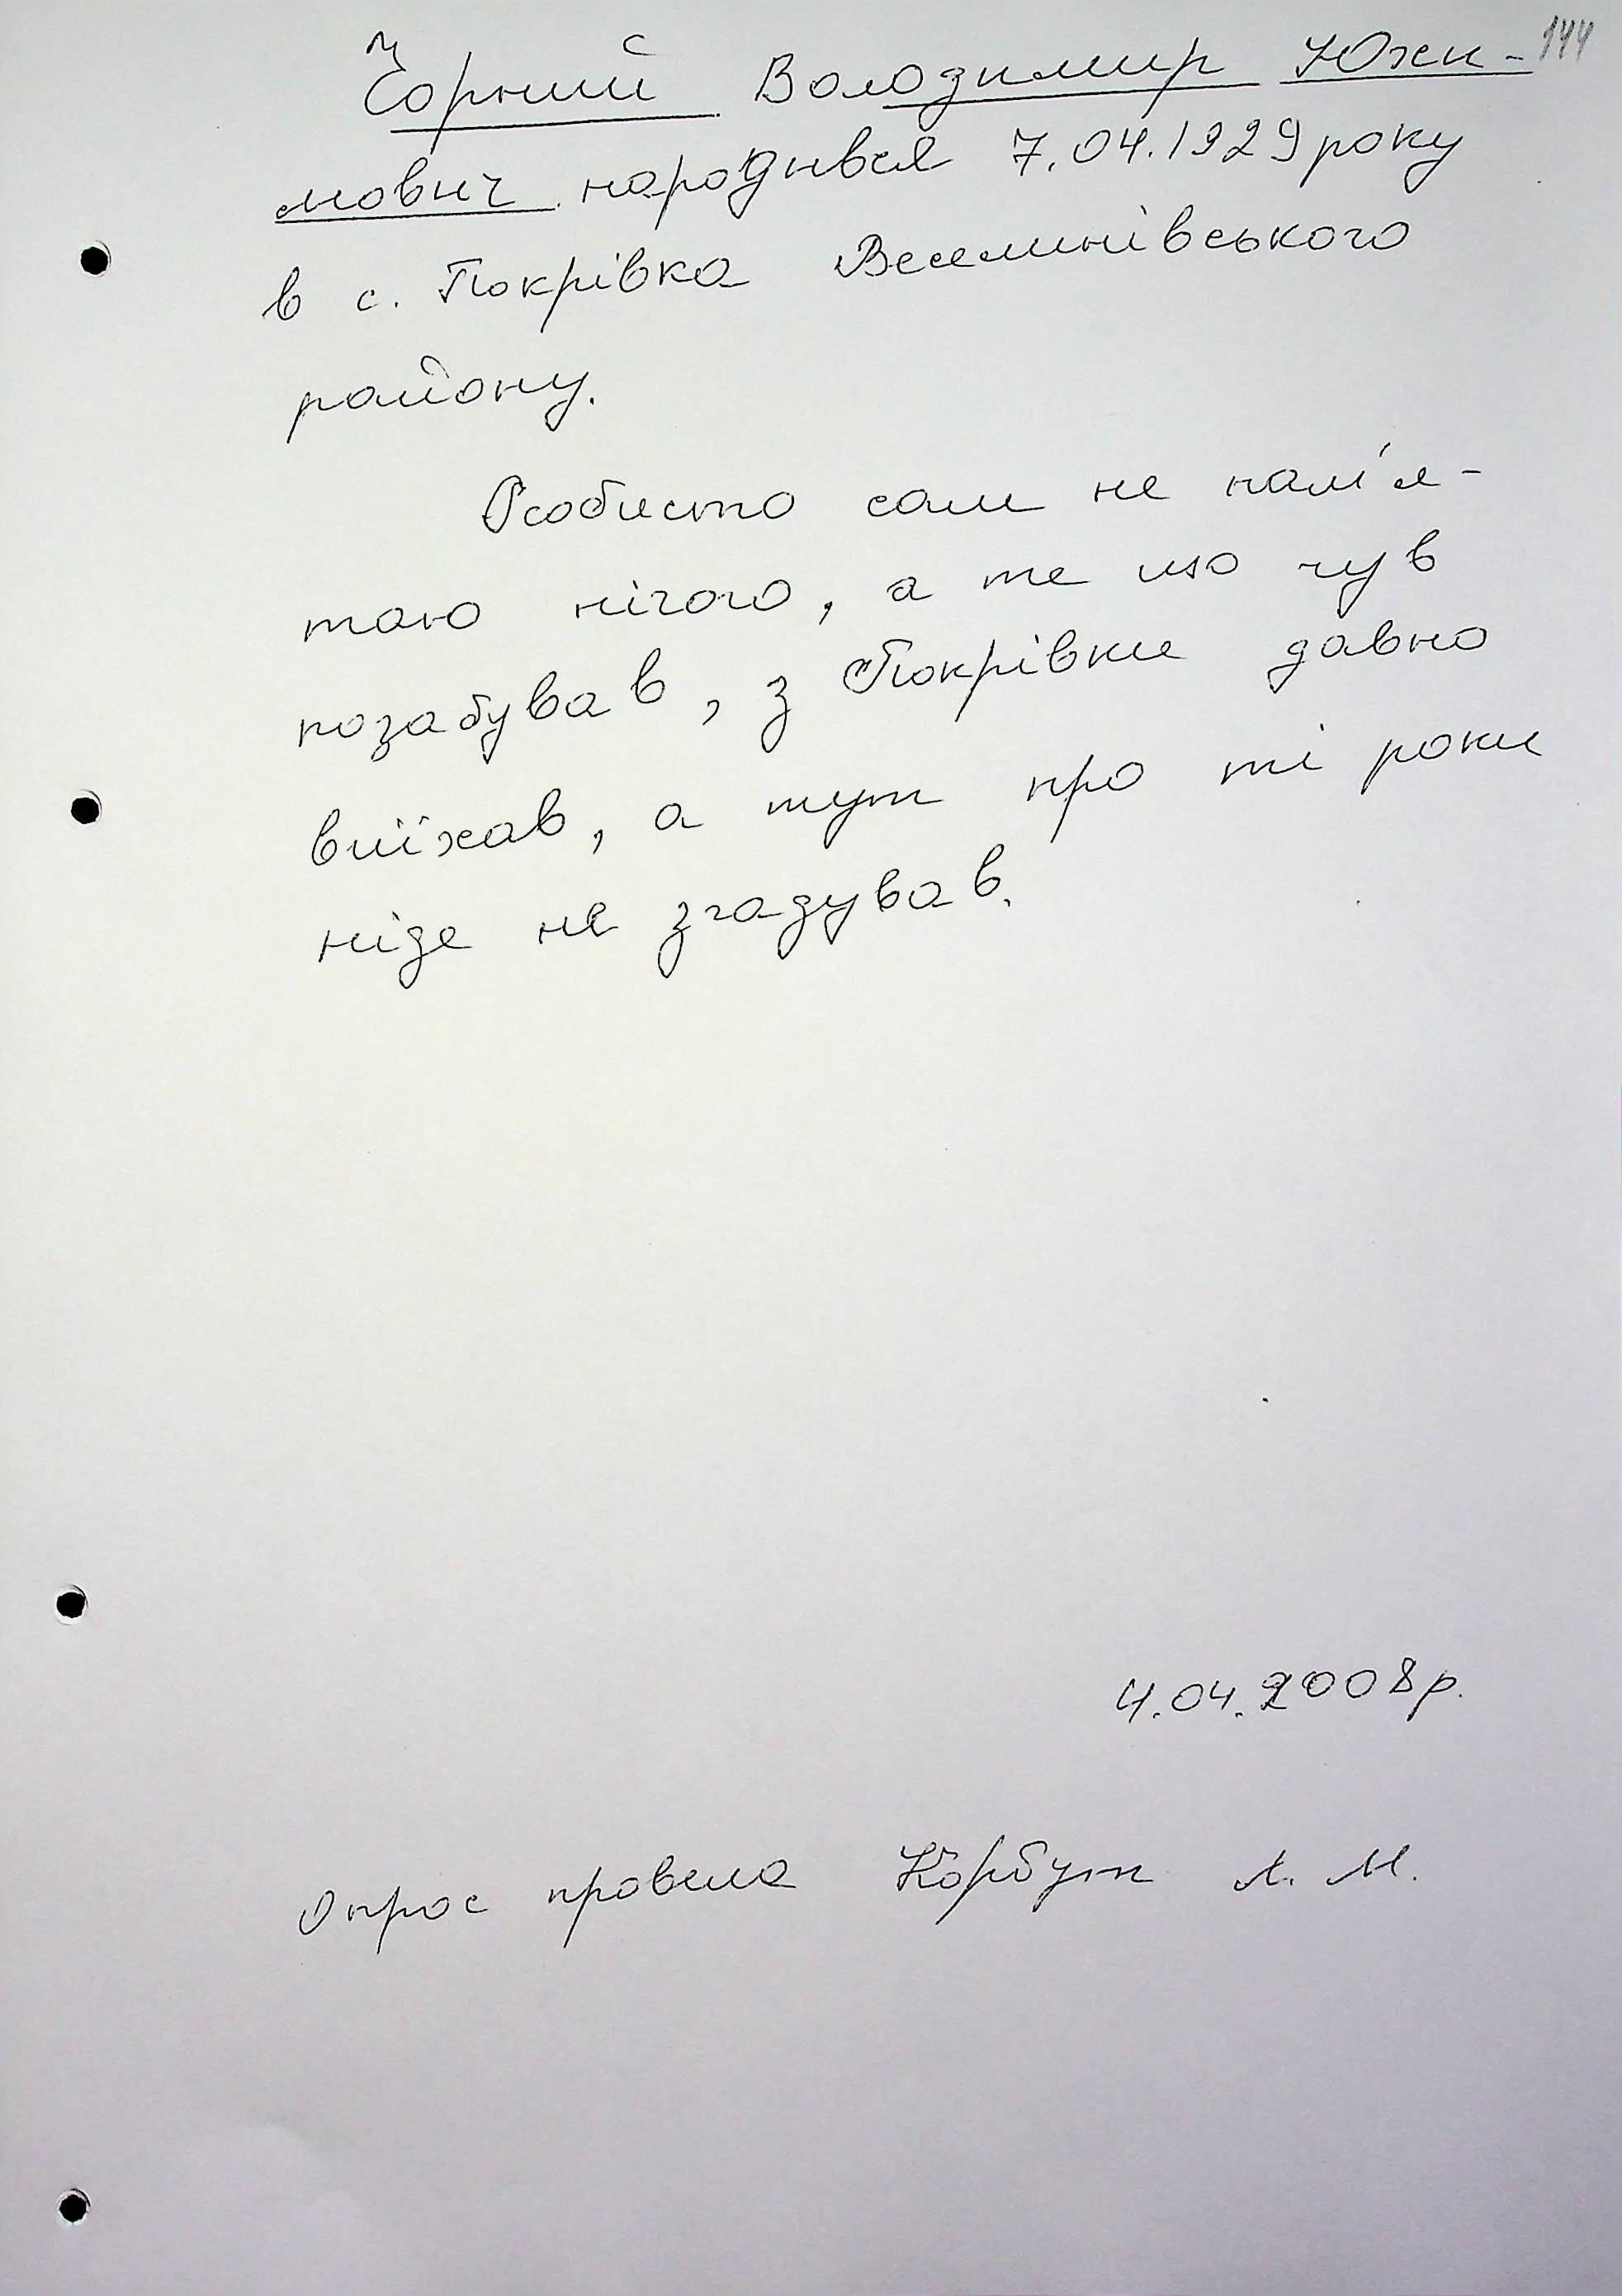 144
Чорний Володимир Юхи-
мович народився 7.04.1929 року
в с. Покрівка Веселинівського
району.
Особисто сам не пам'я-
таю нічого, а те що чув
позабував, з Покрівки давно
виїхав, а тут про ті роки
ніде не згадував.
4.04.2008р.
Опрос провела Корбут Л. М.